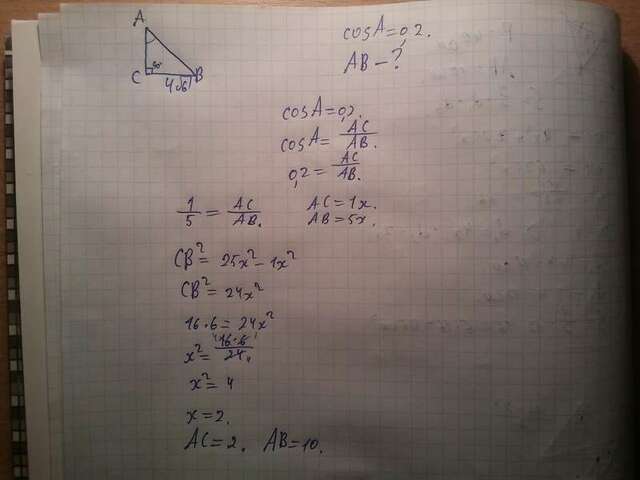 A
C 90° B
4√6
cosA=0,2.
AB-?
cosA=0,2.
cosA= AC/AB.
0,2= AC/AB.
1/5 = AC/AB. AC=1x.
AB=5x.
CB²= 25x²-1x²
CB²= 24x²
16·6=24x²
x²= 16·6/24.
x²=4
x=2.
AC=2. AB=10.